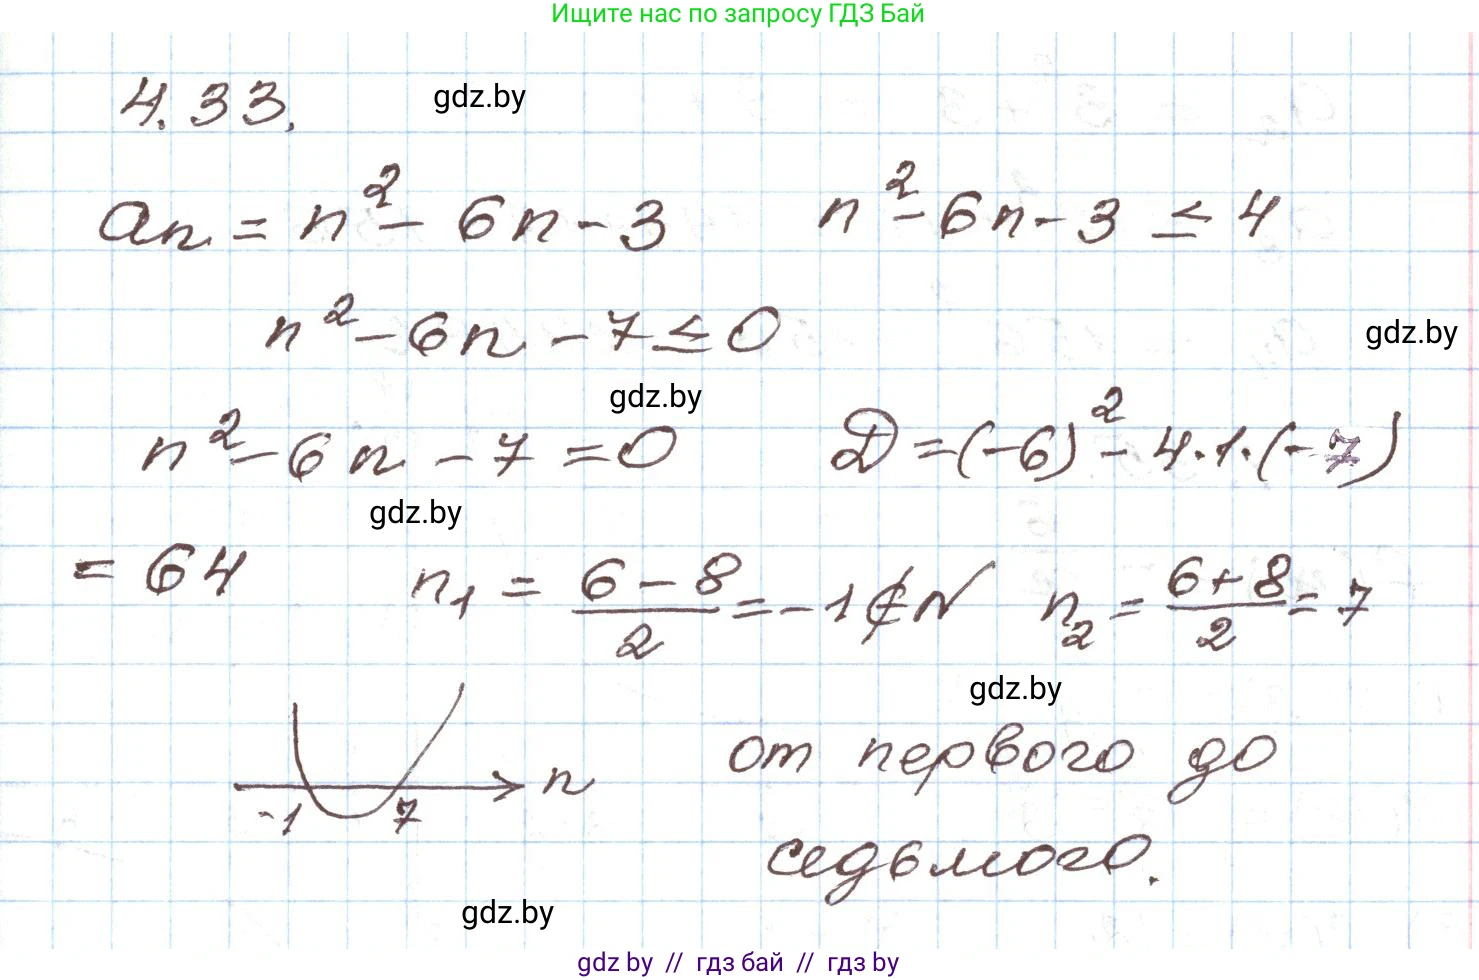 Ищите нас по запросу ГДЗ Бай
4.33.
gdz.by
aₙ = n² - 6n - 3    n² - 6n - 3 ≤ 4
n² - 6n - 7 ≤ 0
gdz.by
gdz.by
n² - 6n - 7 = 0    D = (-6)² - 4·1·(-7)
gdz.by
= 64    n₁ = (6 - 8)/2 = -1 ∉ N    n₂ = (6 + 8)/2 = 7
gdz.by
-1    7    n    от первого до
седьмого.
gdz.by
gdz by // гдз бай // гдз by